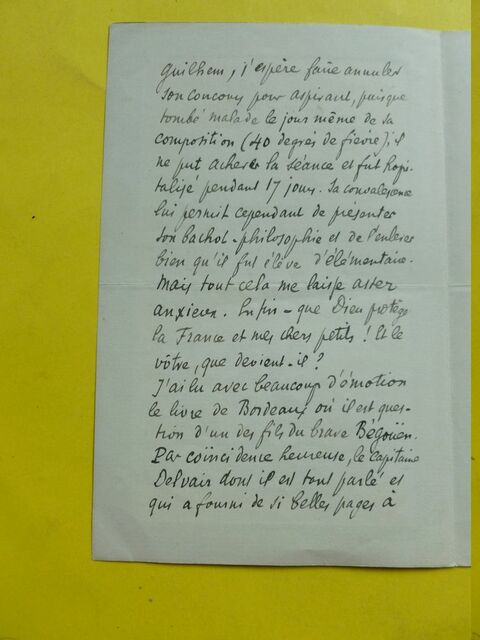 Guilhem, j'espère faire annuler
son concours pour aspirant, puisque
tombé malade le jour même de sa
composition (40 degrés de fièvre), il
ne put achever la séance et fut hospi-
talisé pendant 17 jours. Sa convalescence
lui permit cependant de présenter
son bachot-philosophie et de l'enlever
bien qu'il fut élève d'élémentaire.
Mais tout cela me laisse assez
anxieux. Enfin - que Dieu protège
la France et mes chers petits ! Et le
vôtre, que devient-il ?
J'ai lu avec beaucoup d'émotion
le livre de Bordeaux où il est ques-
tion d'un des fils du brave Bégouën.
Par coïncidence heureuse, le Capitaine
Delvair dont il est tant parlé et
qui a fourni de si belles pages à